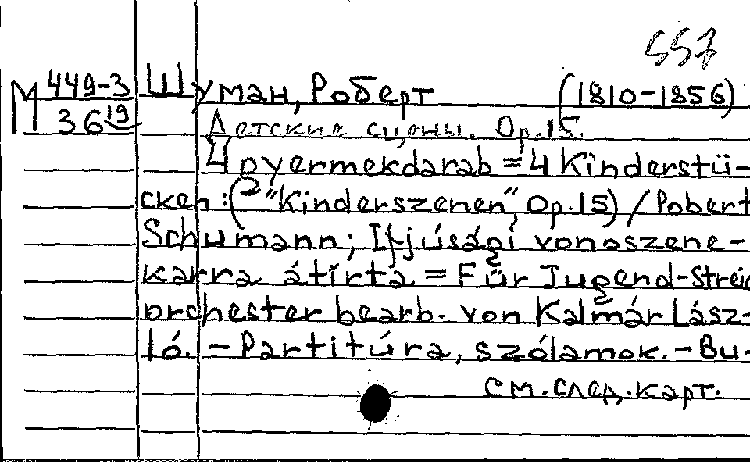 557
М 449-3 Шуман, Роберт (1810-1856)
36 19
Детские сцены. Op.15.
4 gyermekdarab = 4 Kinderstü-
cken : (" Kinderszenen", Op.15) / Robert
Schumann; Ifjúsági vonoszene-
karra átírta = Für Jugend-Streich
orchester bearb. von Kalmár Lász-
ló. - Partitúra, szólamok. - Bu-
см. след. карт.